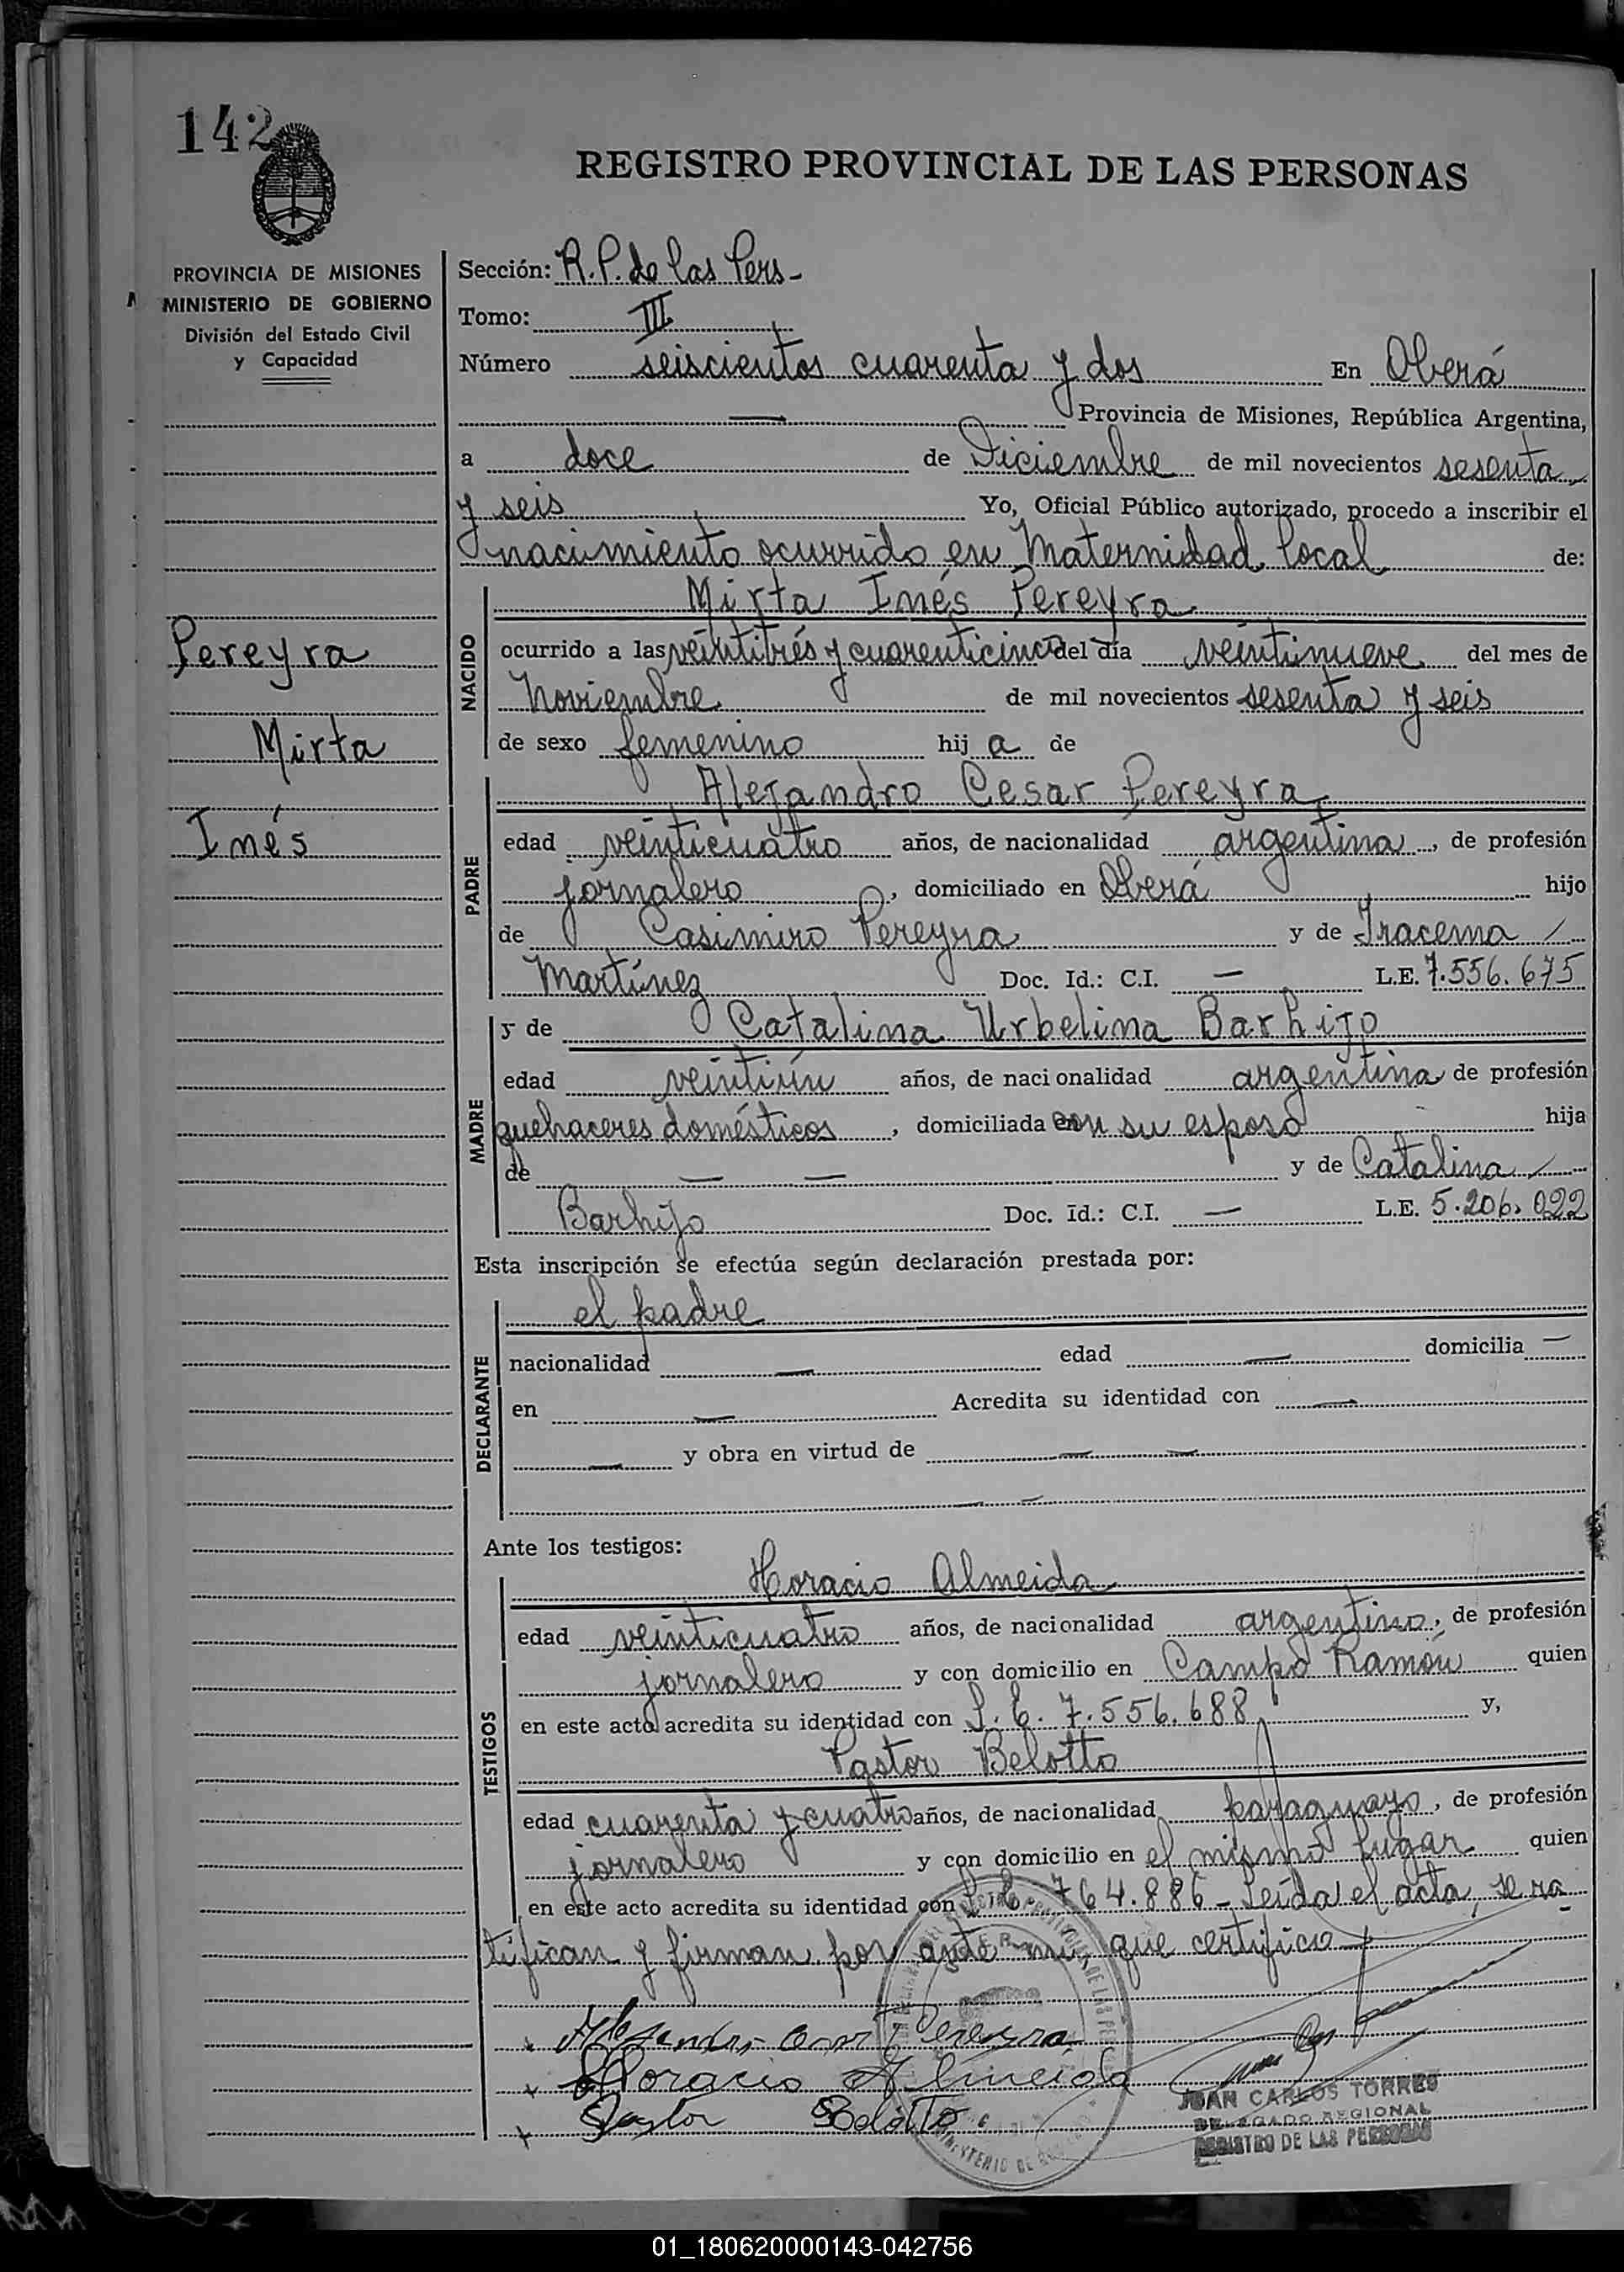 142
REGISTRO PROVINCIAL DE LAS PERSONAS
PROVINCIA DE MISIONES
MINISTERIO DE GOBIERNO
División del Estado Civil
y Capacidad
Pereyra
Mirta
Inés
Sección: R.P. de las Pers-
Tomo: III
Número seiscientos cuarenta y dos En Oberá
— Provincia de Misiones, República Argentina,
a doce de Diciembre de mil novecientos sesenta
y seis Yo, Oficial Público autorizado, procedo a inscribir el
nacimiento ocurrido en Maternidad local de:
NACIDO
Mirta Inés Pereyra
ocurrido a las veintitrés y cuarenticinco del día veintinueve del mes de
Noviembre de mil novecientos sesenta y seis
de sexo femenino hij a de
PADRE
Alejandro Cesar Pereyra
edad veinticuatro años, de nacionalidad argentina, de profesión
jornalero, domiciliado en Oberá hijo
de Casimiro Pereyra y de Iracema /
Martínez Doc. Id.: C.I. — L.E. 7.556.675
MADRE
y de Catalina Urbelina Barhijo
edad veintiún años, de nacionalidad argentina de profesión
quehaceres domésticos, domiciliada con su esposo hija
de — — y de Catalina /
Barhijo Doc. Id.: C.I. — L.E. 5.206.022
Esta inscripción se efectúa según declaración prestada por:
DECLARANTE
el padre
nacionalidad — edad — domicilia —
en — Acredita su identidad con —
— y obra en virtud de — —
— —
Ante los testigos:
TESTIGOS
Horacio Almeida
edad veinticuatro años, de nacionalidad argentino, de profesión
jornalero y con domicilio en Campo Ramón quien
en este acto acredita su identidad con L.E. 7.556.688 y,
Pastor Belotto
edad cuarenta y cuatro años, de nacionalidad paraguayo, de profesión
jornalero y con domicilio en el mismo lugar quien
en este acto acredita su identidad con 764.886 - Leída el acta, se ra
tifican y firman por ante mí que certifico
x Alejandro Cesar Pereyra
x Horacio Almeida
x Pastor Belotto
JUAN CARLOS TORRES
DELEGADO REGIONAL
REGISTRO DE LAS PERSONAS
01_180620000143-042756